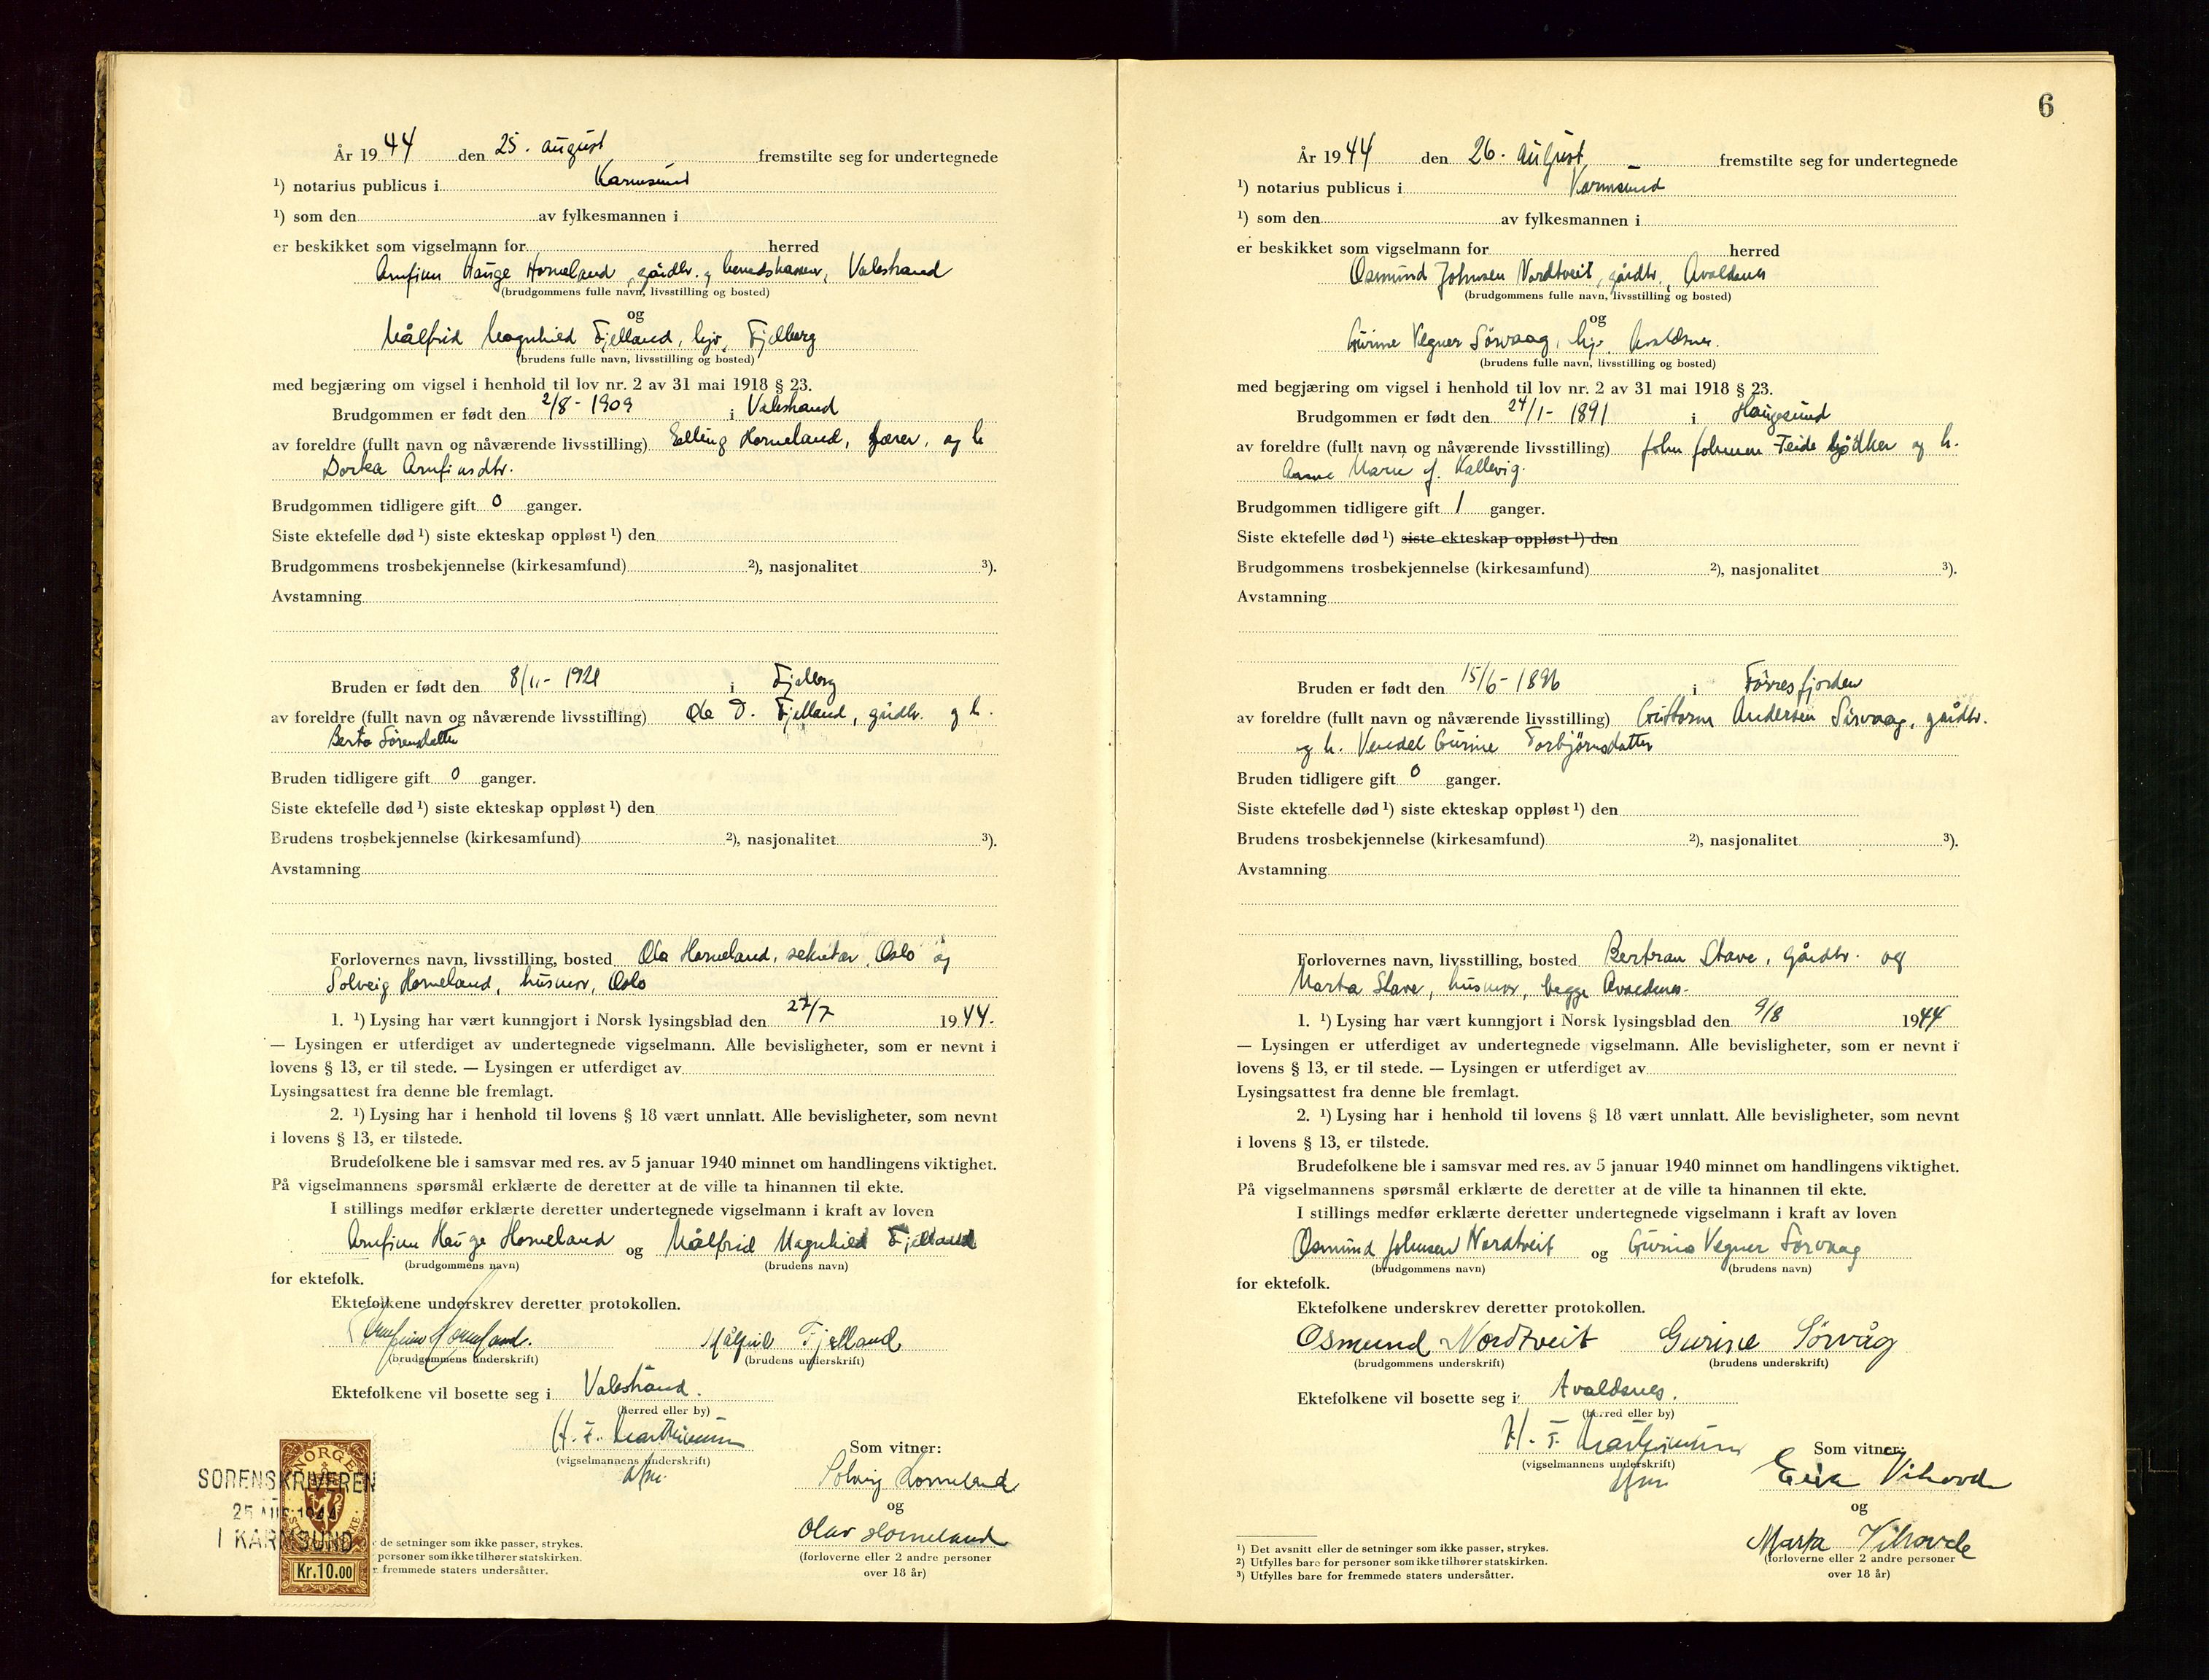 År 1944 den 25. august fremstilte seg for undertegnede
¹) notarius publicus i Karmsund
¹) som den av fylkesmannen i
er beskikket som vigselmann for herred
Arnfinn Hauge Horneland, gårdbr. og herredskasser, Valestrand
(brudgommens fulle navn, livsstilling og bosted)
og
Målfrid Magnhild Fjelland, hjv, Fjelberg
(brudens fulle navn, livsstilling og bosted)
med begjæring om vigsel i henhold til lov nr. 2 av 31 mai 1918 § 23.
Brudgommen er født den 2/8 - 1909 i Valestrand
av foreldre (fullt navn og nåværende livsstilling) Elling Horneland, lærer, og h
Dorthea Arnfinsdtr.
Brudgommen tidligere gift 0 ganger.
Siste ektefelle død ¹) siste ekteskap oppløst ¹) den
Brudgommens trosbekjennelse (kirkesamfund) ²), nasjonalitet ³).
Avstamning
Bruden er født den 8/11 - 1921 i Fjelberg
av foreldre (fullt navn og nåværende livsstilling) Ola D. Fjelland, gårdbr. og h.
Berta Sørensdatter
Bruden tidligere gift 0 ganger.
Siste ektefelle død ¹) siste ekteskap oppløst ¹) den
Brudens trosbekjennelse (kirkesamfund) ²), nasjonalitet ³).
Avstamning
Forlovernes navn, livsstilling, bosted Ola Horneland, sekretær, Oslo og
Solveig Horneland, husmor, Oslo
1. ¹) Lysing har vært kunngjort i Norsk lysingsblad den 27/7 1944.
— Lysingen er utferdiget av undertegnede vigselmann. Alle bevisligheter, som er nevnt i
lovens § 13, er til stede. — Lysingen er utferdiget av
Lysingsattest fra denne ble fremlagt.
2. ¹) Lysing har i henhold til lovens § 18 vært unnlatt. Alle bevisligheter, som nevnt
i lovens § 13, er tilstede.
Brudefolkene ble i samsvar med res. av 5 januar 1940 minnet om handlingens viktighet.
På vigselmannens spørsmål erklærte de deretter at de ville ta hinannen til ekte.
I stillings medfør erklærte deretter undertegnede vigselmann i kraft av loven
Arnfinn Hauge Horneland og Målfrid Magnhild Fjelland
(brudgommens navn) (brudens navn)
for ektefolk.
Ektefolkene underskrev deretter protokollen.
Arnfinn Horneland. Målfrid Fjelland
(brudgommens underskrift) (brudens underskrift)
Ektefolkene vil bosette seg i Valestrand.
(herred eller by)
H. F. Marthinussen
(vigselmannens underskrift)
Som vitner:
Solveig Horneland
og
Olav Horneland
(forloverne eller 2 andre personer
over 18 år)
NORGE
SORENSKRIVEREN
25 AUG 1944
I KARMSUND
Kr.10.00
de setninger som ikke passer, strykes.
personer som ikke tilhører statskirken.
r fremmede staters undersåtter.
6
År 1944 den 26. august fremstilte seg for undertegnede
¹) notarius publicus i Karmsund
¹) som den av fylkesmannen i
er beskikket som vigselmann for herred
Osmund Johnsen Nordtveit, gårdbr., Avaldsnes
(brudgommens fulle navn, livsstilling og bosted)
og
Gurine Vegner Sørvaag, hjv. Avaldsnes.
(brudens fulle navn, livsstilling og bosted)
med begjæring om vigsel i henhold til lov nr. 2 av 31 mai 1918 § 23.
Brudgommen er født den 24/1 - 1891 i Haugesund
av foreldre (fullt navn og nåværende livsstilling) John Johnsen Feide bødker og h.
Anne Marie f. Kallevig.
Brudgommen tidligere gift 1 ganger.
Siste ektefelle død ¹) siste ekteskap oppløst ¹) den
Brudgommens trosbekjennelse (kirkesamfund) ²), nasjonalitet ³).
Avstamning
Bruden er født den 15/6 - 1896 i Førresfjorden
av foreldre (fullt navn og nåværende livsstilling) Guttorm Andersen Sørvaag, gårdbr.
og h. Vendel Gurine Torbjørnsdatter
Bruden tidligere gift 0 ganger.
Siste ektefelle død ¹) siste ekteskap oppløst ¹) den
Brudens trosbekjennelse (kirkesamfund) ²), nasjonalitet ³).
Avstamning
Forlovernes navn, livsstilling, bosted Bertran Stave, gårdbr. og
Marta Stave, husmor, begge Avaldsnes.
1. ¹) Lysing har vært kunngjort i Norsk lysingsblad den 9/8 1944
— Lysingen er utferdiget av undertegnede vigselmann. Alle bevisligheter, som er nevnt i
lovens § 13, er til stede. — Lysingen er utferdiget av
Lysingsattest fra denne ble fremlagt.
2. ¹) Lysing har i henhold til lovens § 18 vært unnlatt. Alle bevisligheter, som nevnt
i lovens § 13, er tilstede.
Brudefolkene ble i samsvar med res. av 5 januar 1940 minnet om handlingens viktighet.
På vigselmannens spørsmål erklærte de deretter at de ville ta hinannen til ekte.
I stillings medfør erklærte deretter undertegnede vigselmann i kraft av loven
Osmund Johnsen Nordtveit og Gurine Vegner Sørvaag
(brudgommens navn) (brudens navn)
for ektefolk.
Ektefolkene underskrev deretter protokollen.
Osmund Nordtveit Gurine Sørvåg
(brudgommens underskrift) (brudens underskrift)
Ektefolkene vil bosette seg i Avaldsnes.
(herred eller by)
H. F. Marthinussen
(vigselmannens underskrift)
Som vitner:
Vihovde
og
Marta Vihovde
(forloverne eller 2 andre personer
over 18 år)
¹) Det avsnitt eller de setninger som ikke passer, strykes.
²) Utfylles bare for personer som ikke tilhører statskirken.
³) Utfylles bare for fremmede staters undersåtter.